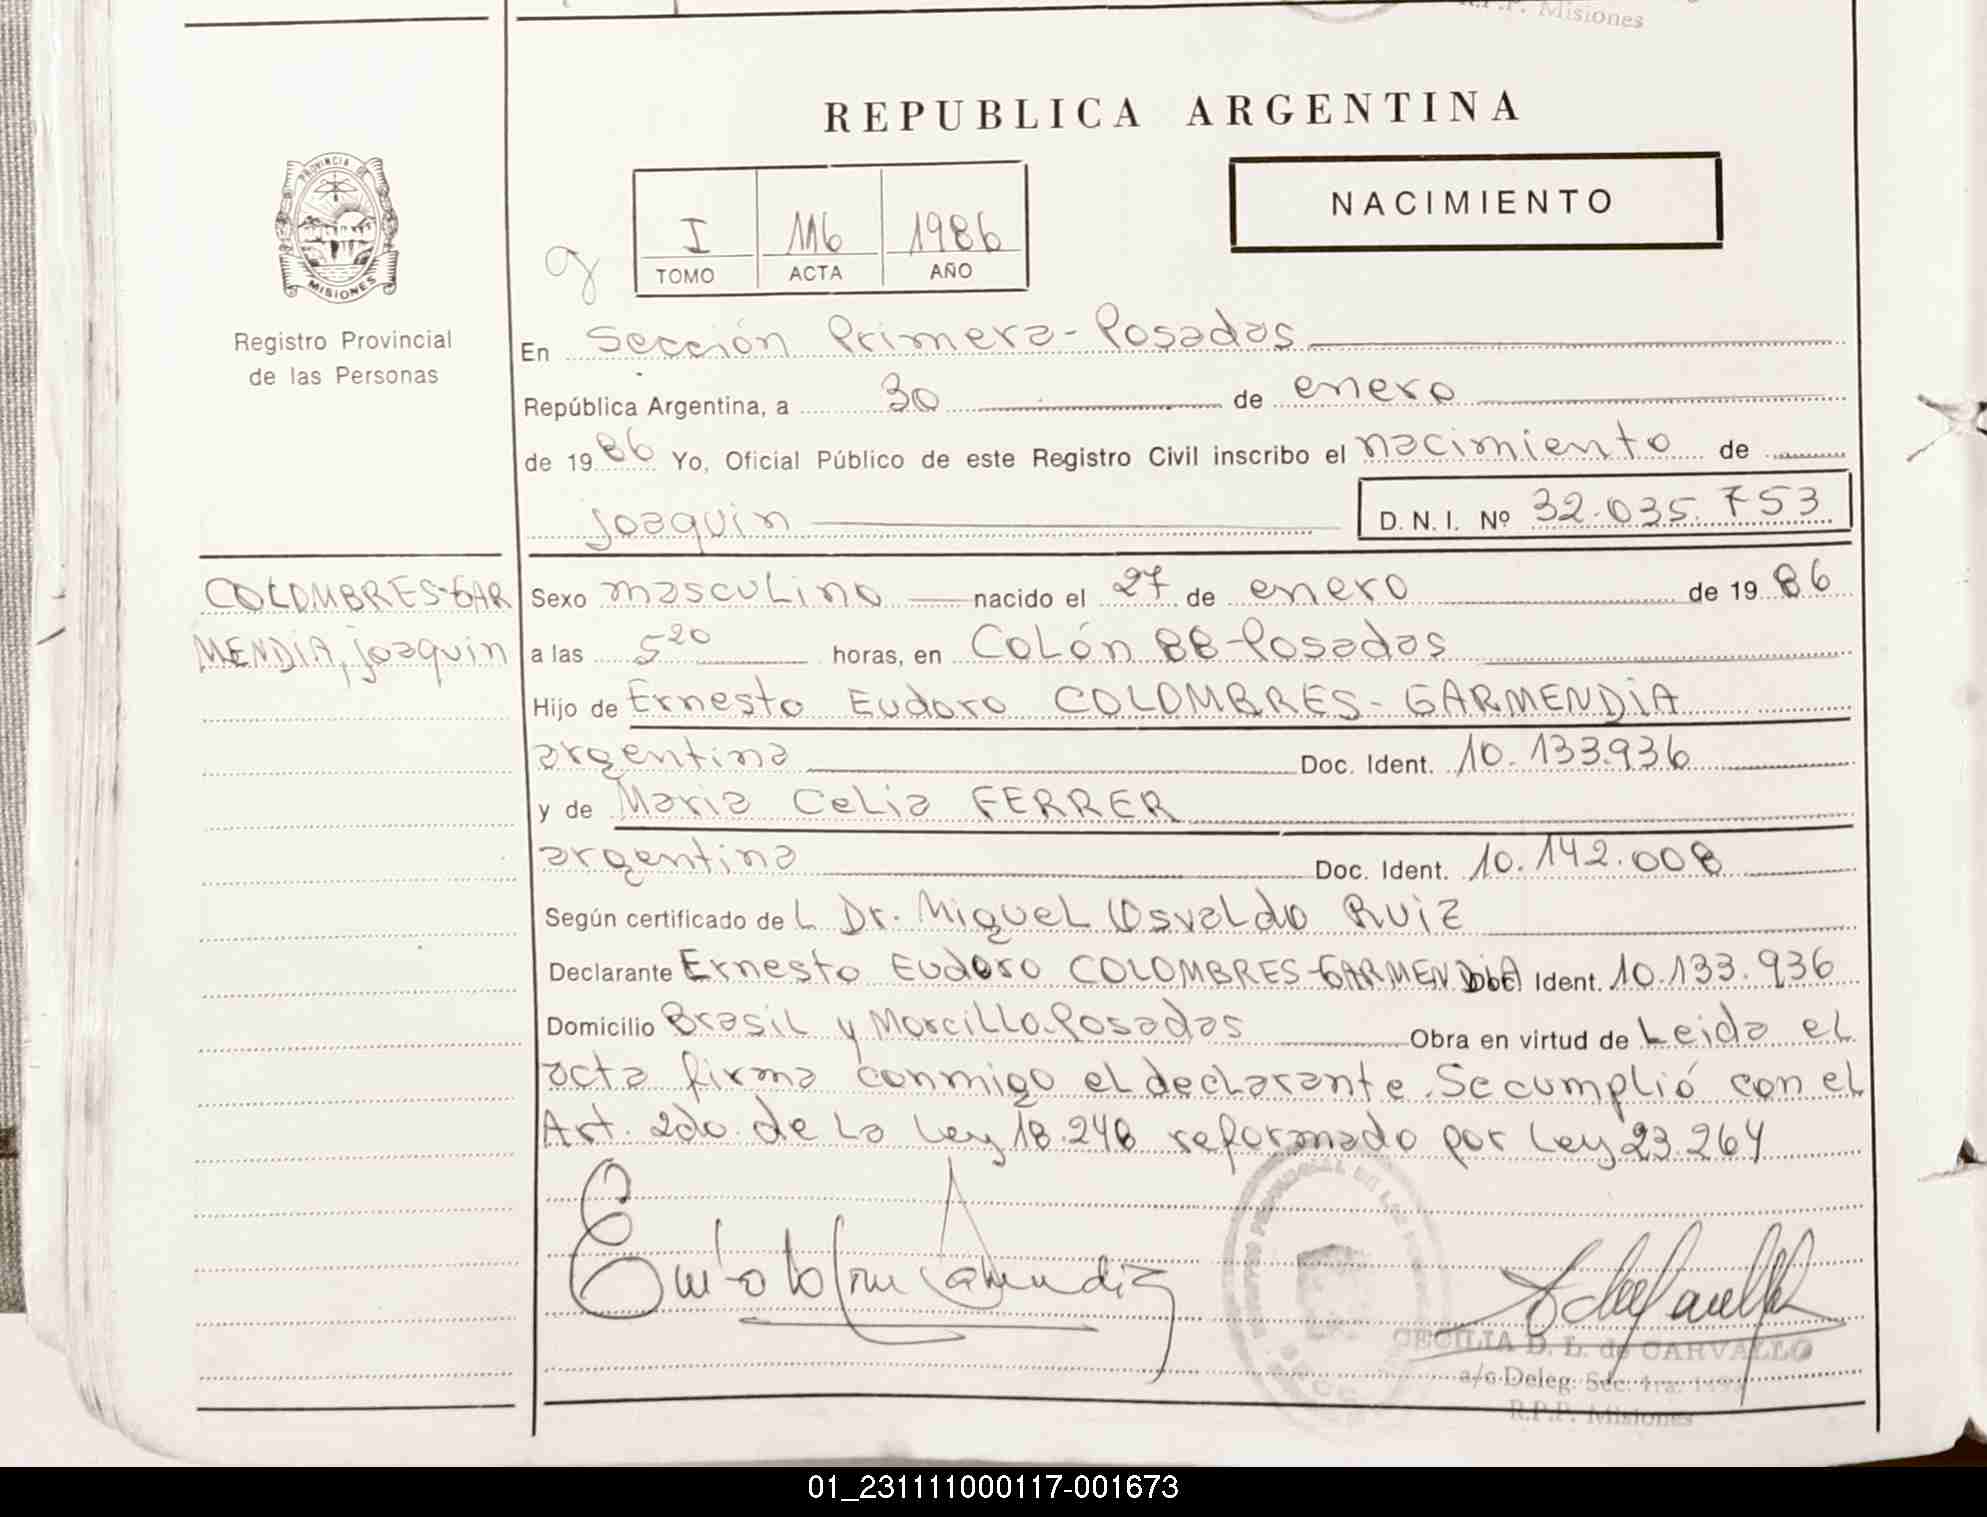 R.P.P. Misiones
REPUBLICA ARGENTINA
PROVINCIA DE
MISIONES
Registro Provincial
de las Personas
I 116 1986
TOMO ACTA AÑO
NACIMIENTO
En Sección Primera-Posadas
República Argentina, a 30 de enero
de 1986 Yo, Oficial Público de este Registro Civil inscribo el nacimiento de
Joaquin D. N. I. Nº 32.035.753
COLOMBRES-GAR
MENDIA, Joaquin
Sexo masculino nacido el 27 de enero de 1986
a las 5 20 horas, en Colón 88-Posadas
Hijo de Ernesto Eudoro COLOMBRES-GARMENDIA
argentina Doc. Ident. 10.133.936
y de Maria Celia FERRER
argentina Doc. Ident. 10.142.008
Según certificado de L Dr. Miguel Osvaldo RUIZ
Declarante Ernesto Eudoro COLOMBRES-GARMENDIA Doc. Ident. 10.133.936
Domicilio Brasil y Morcillo.Posadas Obra en virtud de Leida el
acta firma conmigo el declarante. Se cumplió con el
Art. 2do. de la Ley 18.248 reformado por Ley 23.264
CECILIA D. L. de CARVALLO
a/c Deleg. Sec. 1ra.
R.P.P. Misiones
01_231111000117-001673